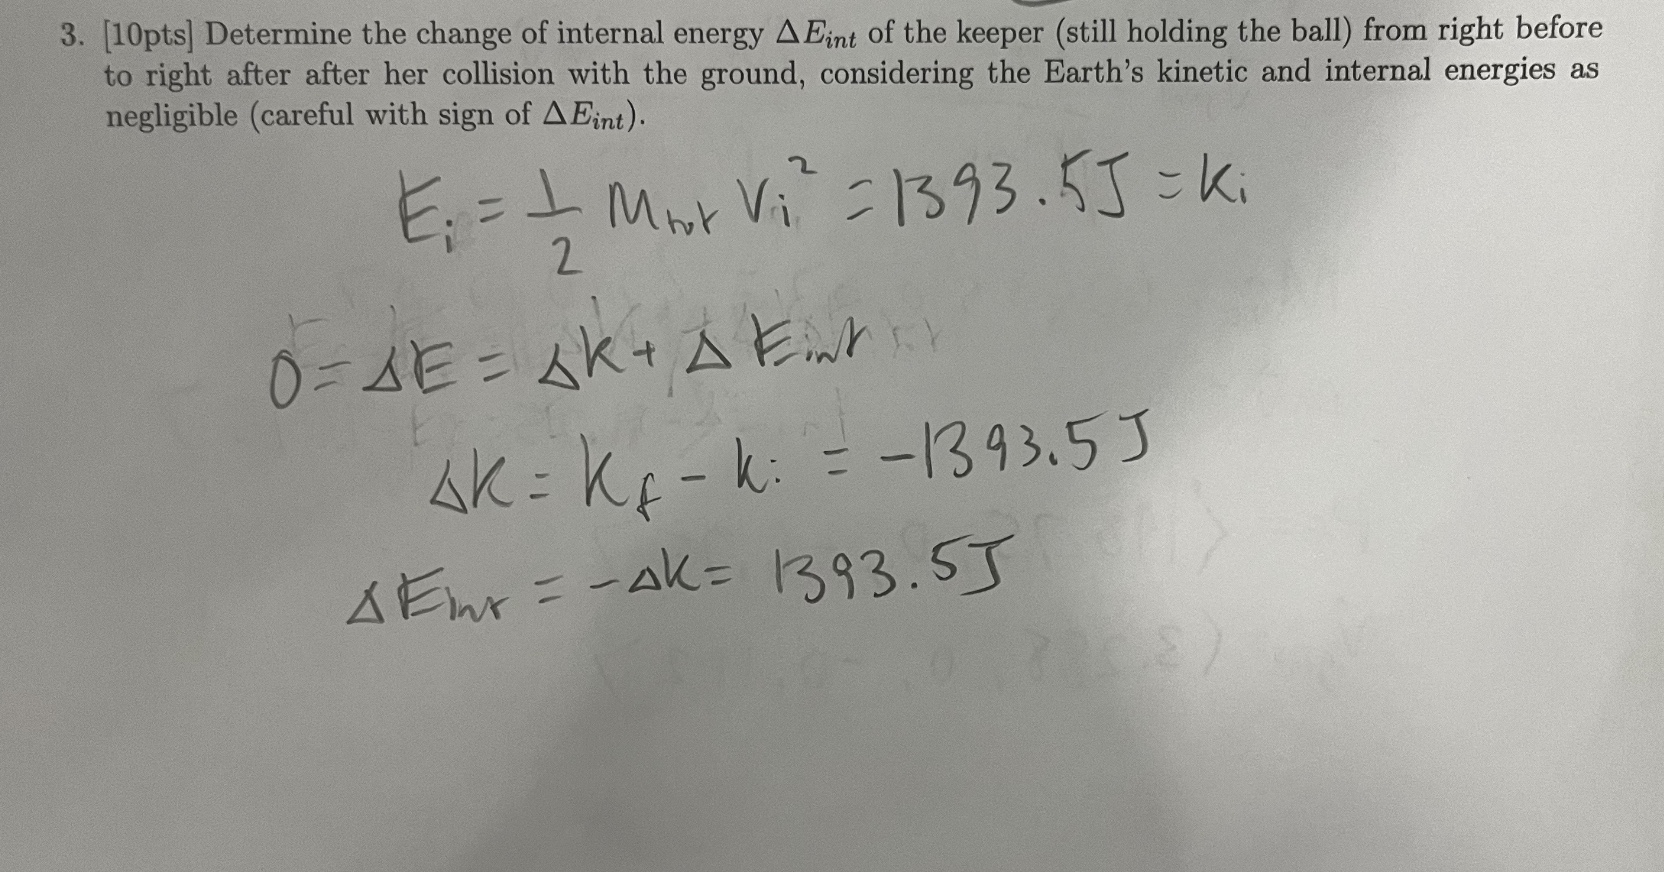 3. [10pts] Determine the change of internal energy ΔE_int of the keeper (still holding the ball) from right before
to right after after her collision with the ground, considering the Earth's kinetic and internal energies as
negligible (careful with sign of ΔE_int).
E_i = 1/2 M_tot V_i² = 1393.5J = K_i
0 = ΔE = ΔK + ΔE_int
ΔK = K_f - K_i = -1393.5J
ΔE_int = -ΔK = 1393.5J